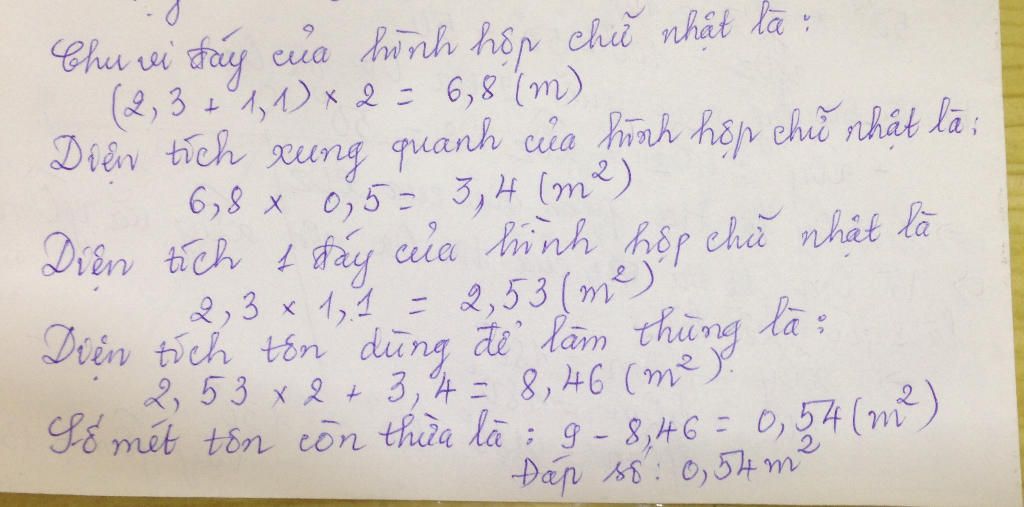 Chu vi đáy của hình hộp chữ nhật là:
(2,3 + 1,1) × 2 = 6,8 (m)
Diện tích xung quanh của hình hộp chữ nhật là:
6,8 × 0,5 = 3,4 (m²)
Diện tích 1 đáy của hình hộp chữ nhật là
2,3 × 1,1 = 2,53 (m²)
Diện tích tôn dùng để làm thùng là:
2,53 × 2 + 3,4 = 8,46 (m²).
Số mét tôn còn thừa là: 9 - 8,46 = 0,54 (m²)
Đáp số: 0,54 m²